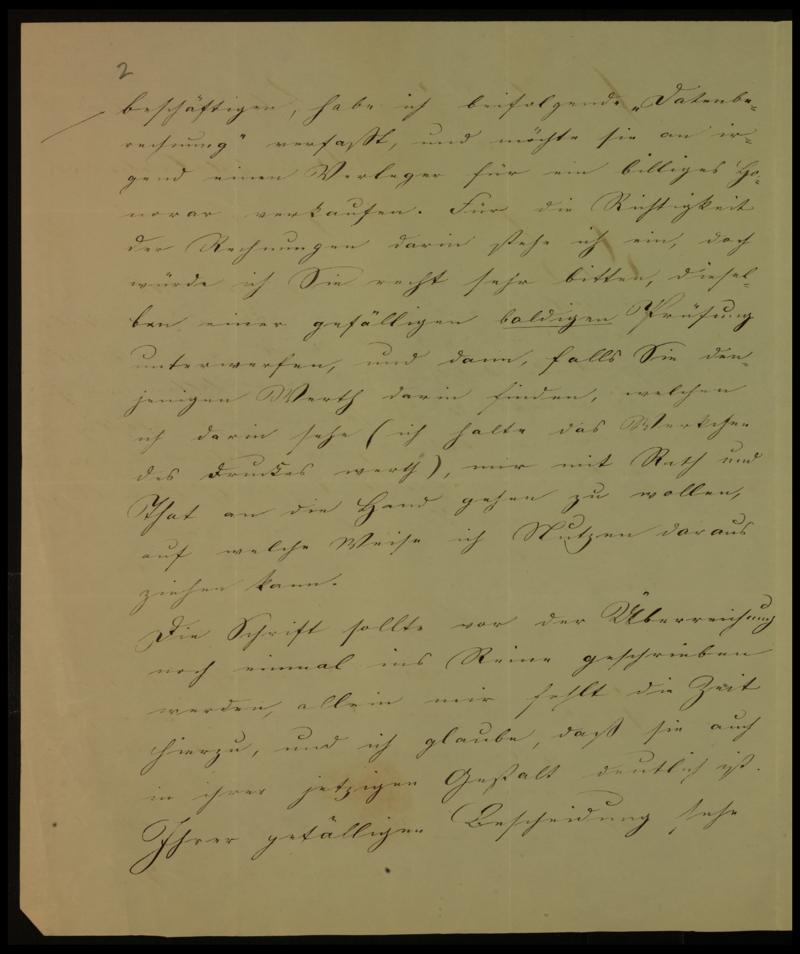 2
beschäftigen, habe ich beifolgende „Datenbe-
rechnung" verfaßt, und möchte sie an ir-
gend einen Verleger für ein billiges Ho-
norar verkaufen. Für die Richtigkeit
der Rechnungen darin stehe ich ein, doch
würde ich Sie recht sehr bitten, diesel-
ben einer gefälligen baldigen Prüfung
unterwerfen, und dann, falls Sie den-
jenigen Werth darin finden, welchen
ich darin sehe (ich halte das Werkchen
des Druckes werth), mir mit Rath und
That an die Hand gehen zu wollen,
auf welche Weise ich Nutzen daraus
ziehen kann.
Die Schrift sollte vor der Überreichung
noch einmal ins Reine geschrieben
werden, allein mir fehlt die Zeit
hierzu, und ich glaube, daß sie auch
in ihrer jetzigen Gestalt deutlich ist.
Ihrer gefälligen Bescheidung sehe